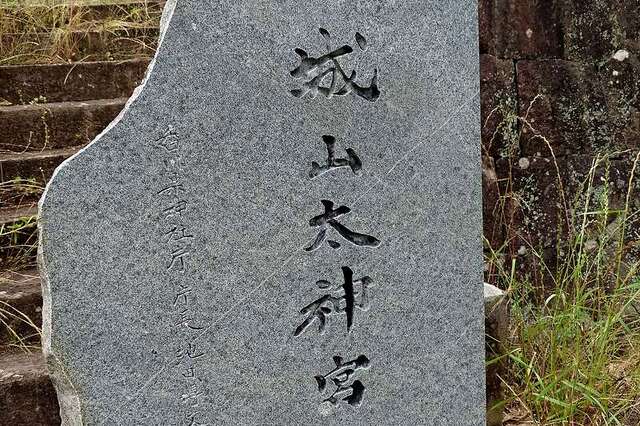 城山太神宮
香川県神社庁庁長